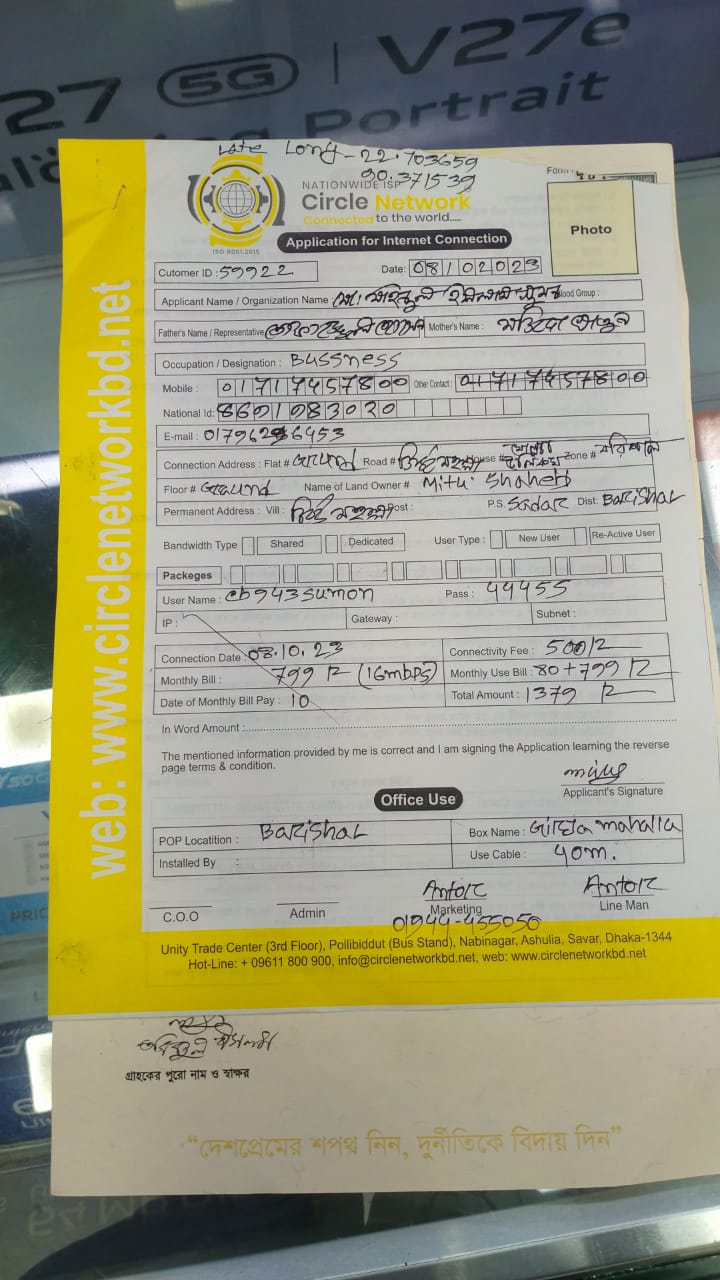 27 5G | V27e
Portrait
Late Long - 22.703659
90.371539
NATIONWIDE ISP
Circle Network
Connected to the world.....
ISO 9001:2015
Application for Internet Connection
Photo
Cutomer ID : 59922 Date: 08/02023
Applicant Name / Organization Name মো: ইসলাম সুমন Blood Group :
Father's Name / Representative Mother's Name :
Occupation / Designation : Bussness
Mobile : 01717457800 Other Contact : 01717457800
National Id: 8601083020
E-mail :
Connection Address : Flat # Road # House # Zone # বরিশাল
Floor # Graund Name of Land Owner # Mitu Shaheb
Permanent Address : Vill : Post : P.S. Sadar Dist: Barishal
Bandwidth Type Shared Dedicated User Type : New User Re-Active User
Packeges
User Name : cb943sumon Pass : 44455
IP : Gateway : Subnet :
Connection Date : 08.10.23 Connectivity Fee : 500/2
Monthly Bill : 799 (16mbps) Monthly Use Bill : 80 + 799
Date of Monthly Bill Pay : 10 Total Amount : 1379
In Word Amount :
The mentioned information provided by me is correct and I am signing the Application learning the reverse
page terms & condition.
Applicant's Signature
Office Use
POP Locatition : Barishal Box Name : Girza mahalla
Installed By : Use Cable : 40m.
Antor Antor
C.O.O Admin Marketing Line Man
01944-455050
Unity Trade Center (3rd Floor), Pollibiddut (Bus Stand), Nabinagar, Ashulia, Savar, Dhaka-1344
Hot-Line: + 09611 800 900, info@circlenetworkbd.net, web: www.circlenetworkbd.net
web: www.circlenetworkbd.net
গ্রাহকের পুরো নাম ও স্বাক্ষর
“দেশপ্রেমের শপথ নিন, দুর্নীতিকে বিদায় দিন”